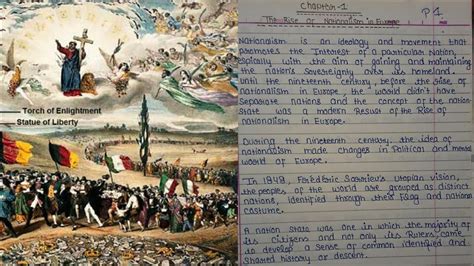 Torch of Enlightment
Statue of Liberty
Chapter-1
P1
The Rise of Nationalism in Europe
Nationalism is an ideology and movement that
promotes the Interest of a particular Nation,
espically with the aim of gaining and maintaining
the nation's Sovereignty over its homeland.
until the nineteenth century, before the rise of
nationalism in Europe, the world didn't have
separate nations and the concept of the nation
State was a modern Result of the Rise of
nationalism in Europe.
During the nineteenth century, the idea of
nationalism made changes in Political and mental
world of Europe.
In 1848, Frédéric Sorrieu's utopian vision,
the peoples of the world are grouped as distinct
nations, identified through their flag and national
costume.
A nation State was one in which the majority of
its citizens and not only its Rulers, came
to develop a sense of common identified and
shared history or descent.